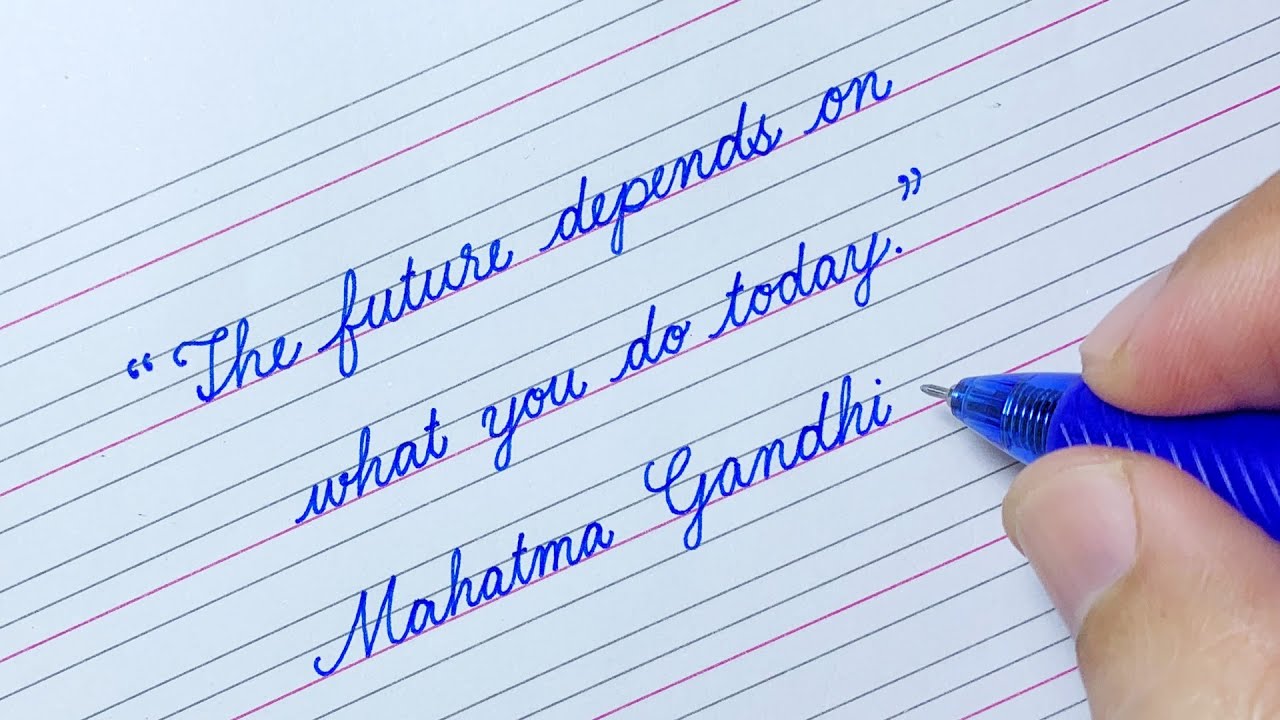 “The future depends on
what you do today.”
Mahatma Gandhi